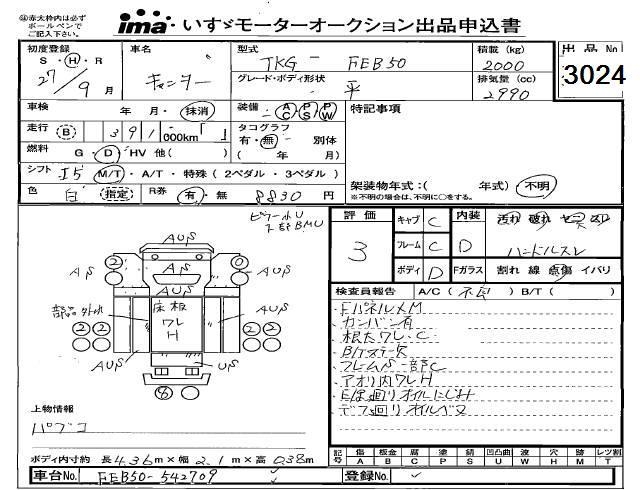 ㊟赤太枠内は必ず
ボールペンで
ご記入下さい。
ima いすゞモーターオークション出品申込書
初度登録 車名 型式 積載 (kg) 出品No
S・H・R 27/9月 キャンター TKG - FEB50 2000 3024
グレード・ボディ形状 排気量 (cc)
平 2990
車検 年 月・抹消 装備 AC PS PW 特記事項
走行 B 391,000km「 」 タコグラフ
有・無 別体
燃料 G・D・HV 他( ) ( 年 月)
シフト I5 M/T・A/T・特殊 (2ペダル・3ペダル) 架装物年式:( 年式)・不明
色 白 指定 R券 有・無 8830円 ※不明の場合は、不明に○をする。
評価 キャブ C 内装 汚れ 破れ ヤニ スレ
3 フレーム C D ハンドルスレ
ボディ D Fガラス 割れ 線 点傷 イバリ
検査員報告 A/C (不良) B/T ( )
・Fパネル〆M
・カンバン有
・根太ワレ・C
・B/Tステー欠
・フレームS一部C
・アオリ内ワレH
・E/G廻りオイルにじみ
・デフ廻りオイルモレ
AUS
AUS
AUS
AS 2 0 AS
部品外れ 床板 ワレ H
2 2 2 2
AUS US
8
上物情報
パブコ
ボディ内寸約 長4.36m×幅2.1m×高0.38m
記号 傷A 板金B 腐C 塗P 錆S 凹凸曲U 波W 穴H 跡M レツ割T
車台No. FEB50-542709 登録No.